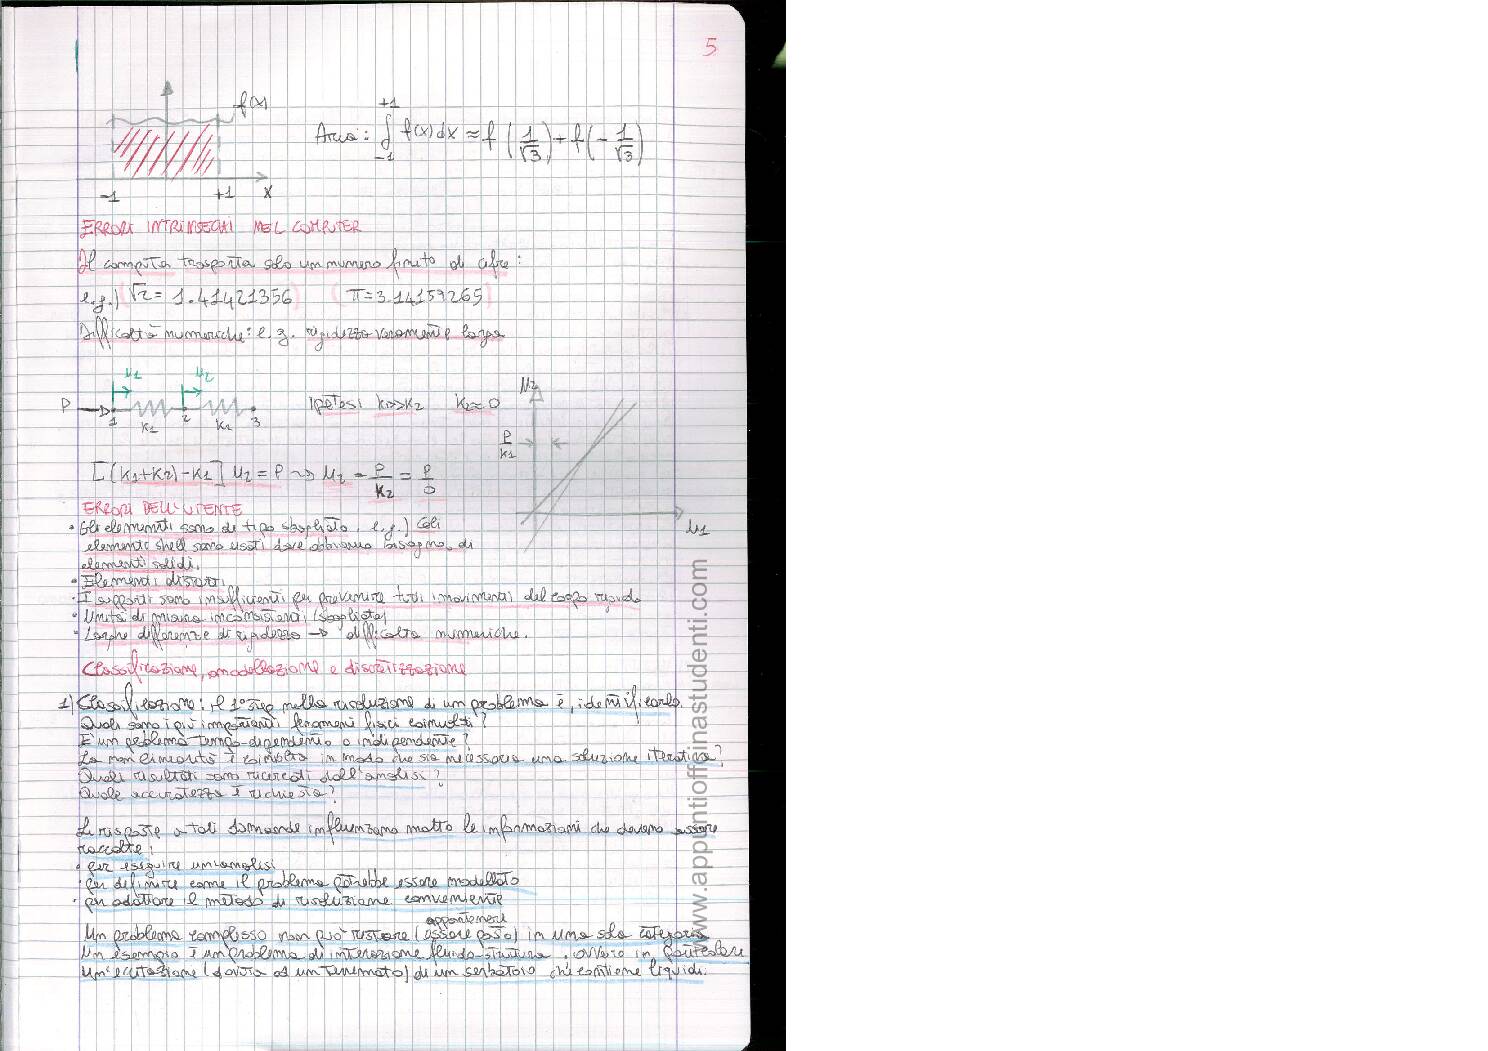 5
f(x)
+1
Area: ∫ f(x)dx ≈ f (1/√3) + f(- 1/√3)
-1
-1 +1 X
ERRORI INTRINSECHI NEL COMPUTER
Il computer trasporta solo un numero finito di cifre:
e.g.) √2 = 1.41421356 (π=3.14159265)
Difficoltà numeriche: e.g. rigidezza veramente larga
u1 u2
P 1 K1 2 K2 3
Ipotesi K1>>K2 K2≈0
u2
P/K1
u1
[(K1+K2)-K1] u2 = P → u2 = P/K2 = P/0
ERRORI DELL'UTENTE
• Gli elementi sono di tipo sbagliato, e.g.) Gli
elementi shell sono usati dove abbiamo bisogno di
elementi solidi.
• Elementi distorti
• I supporti sono insufficienti per prevenire tutti i movimenti del corpo rigido
• Unità di misura inconsistenti (sbagliate)
• Larghe differenze di rigidezza → difficoltà numeriche.
Classificazione, modellazione e discretizzazione
1) Classificazione: il 1° step nella risoluzione di un problema è, identificarlo.
Quali sono i più importanti fenomeni fisici coinvolti?
E' un problema tempo-dipendente o indipendente?
La non linearità è coinvolta in modo che sia necessaria una soluzione iterativa?
Quali risultati sono ricercati dall'analisi?
Quale accuratezza è richiesta?
Le risposte a tali domande influenzano molto le informazioni che devono essere
raccolte:
• per eseguire un'analisi
• per definire come il problema potrebbe essere modellato
• per adottare il metodo di risoluzione conveniente
Un problema complesso non può restare (essere posto) in una sola categoria
Un esempio è un problema di interazione fluido-struttura, ovvero in particolare
un'eccitazione (dovuta ad un terremoto) di un serbatoio che contiene liquidi.
www.appuntiofficinastudenti.com